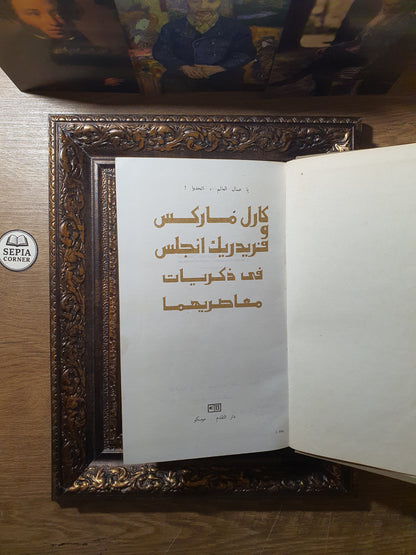 يا عمال العالم ، اتحدوا !
كارل ماركس
و
فريدريك انجلس
فى ذكريات
معاصريهما
دار التقدم موسكو
SEPIA
CORNER